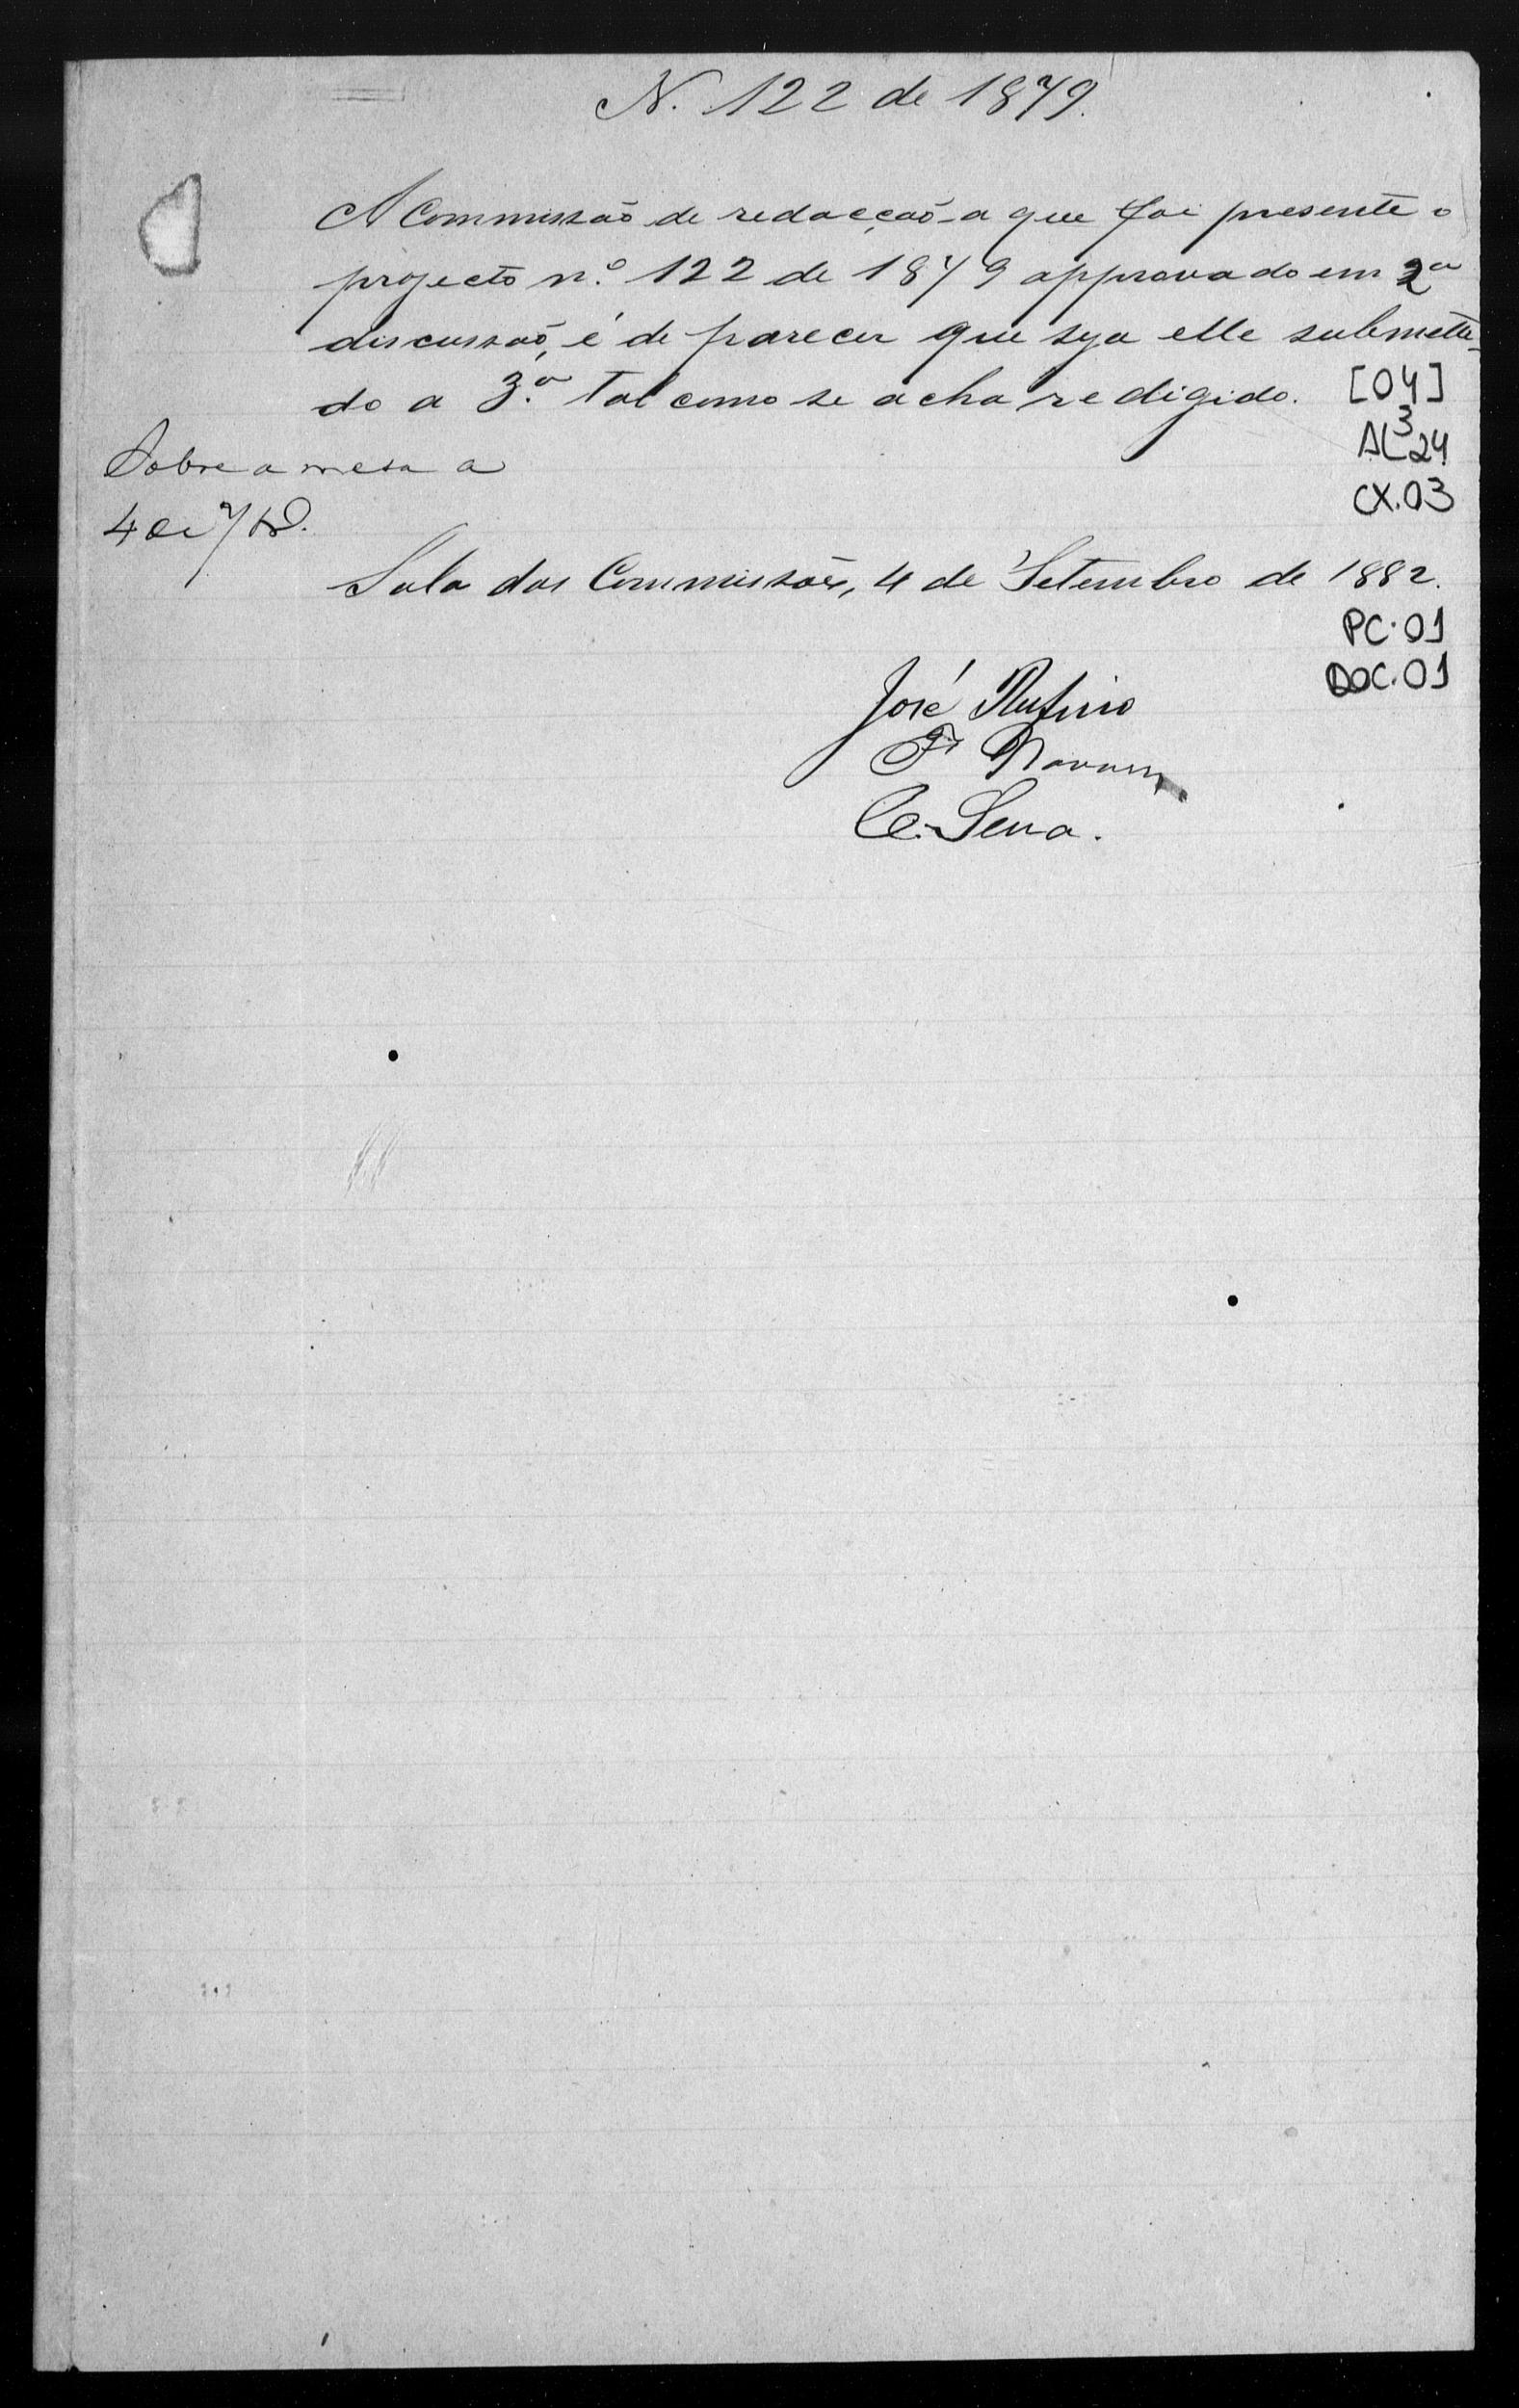 N. 122 de 1879.
A Commissão de redacção a que foi presente o
projecto n.º 122 de 1879 approvado em 2ª
discussão, é de parecer que seja elle submetti-
do a 3.ª tal como se acha redigido.
[04]
AL3
24
CX.03
Sobre a mesa a
Sala das Commissões, 4 de Setembro de 1882.
PC.01
DOC.01
José Rufino
F
C. Sena.